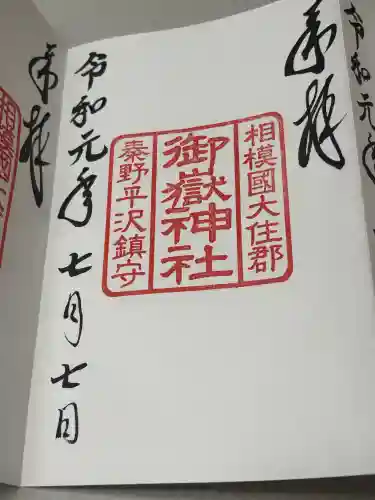 奉拝
相模國大住郡
御嶽神社
秦野平沢鎮守
令和元年七月七日
奉拝
令和元年
相模國